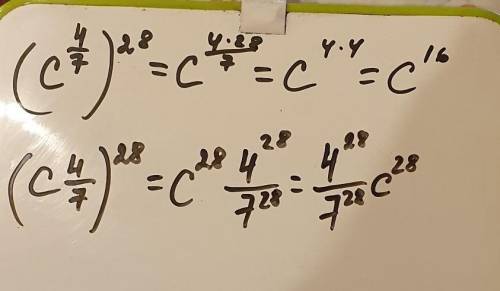 (c^{4/7})^{28} = c^{\frac{4·28}{7}} = c^{4·4} = c^{16}
(c \frac{4}{7})^{28} = c^{28} \frac{4^{28}}{7^{28}} = \frac{4^{28}}{7^{28}} c^{28}